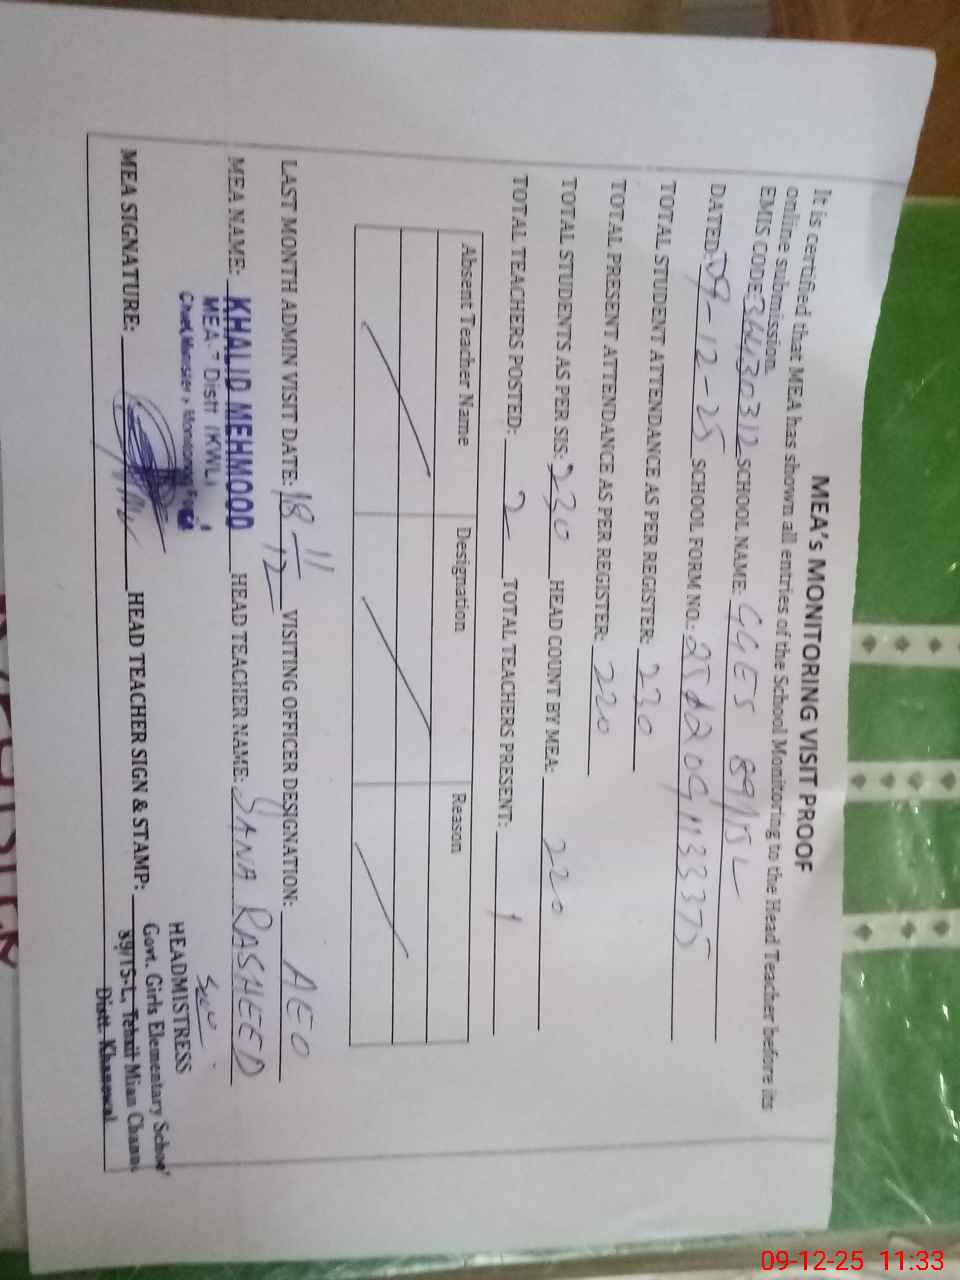 MEA's MONITORING VISIT PROOF
It is certified that MEA has shown all entries of the School Monitoring to the Head Teacher before its
online submission.
EMIS CODE: 36430312 SCHOOL NAME: GGES 89/15L
DATED: 09-12-25 SCHOOL FORM NO.: 2512091133375
TOTAL STUDENT ATTENDANCE AS PER REGISTER: 230
TOTAL PRESENT ATTENDANCE AS PER REGISTER: 220
TOTAL STUDENTS AS PER SIS: 230 HEAD COUNT BY MEA: 220
TOTAL TEACHERS POSTED: 2 TOTAL TEACHERS PRESENT: 1
Absent Teacher Name Designation Reason
LAST MONTH ADMIN VISIT DATE: 18 11/12 VISITING OFFICER DESIGNATION: AEO
MEA NAME: KHALID MEHMOOD HEAD TEACHER NAME: SANA RASHEED
MEA - 7 Distt (KWL)
Monitoring Force
MEA SIGNATURE: HEAD TEACHER SIGN & STAMP:
HEADMISTRESS
Govt. Girls Elementary School
89/15-L, Tehsil Mian Channu
Distt. Khanewal
09-12-25 11:33